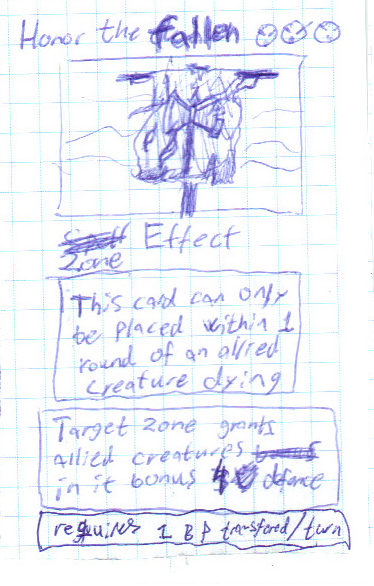 Honor the fallen
Effect
Zone
This card can only
be placed within 1
round of an allied
creature dying
Target zone grants
allied creatures
in it bonus defence
requires 1 BP transfered/turn